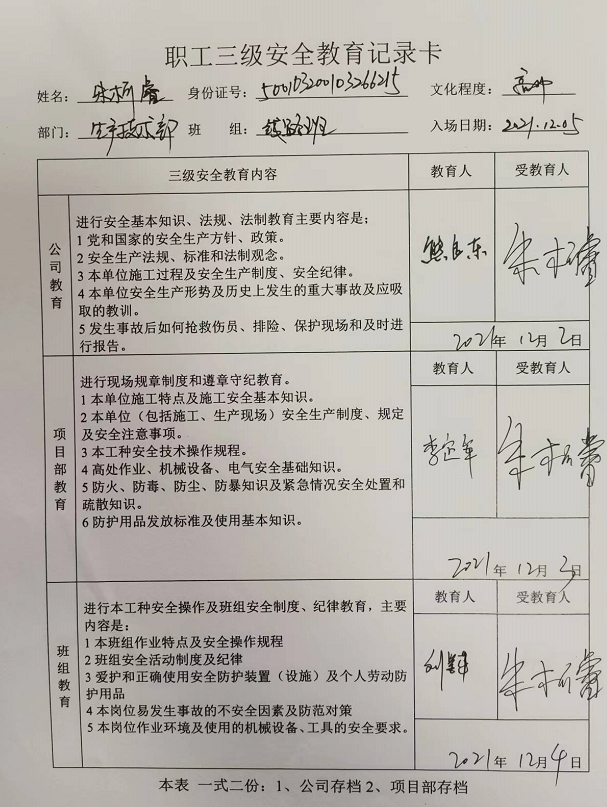 职工三级安全教育记录卡
姓名： 身份证号：500103200103266215 文化程度：高中
部门：生产技术部 班 组： 入场日期：2021.12.05
三级安全教育内容 教育人 受教育人
公司教育
进行安全基本知识、法规、法制教育主要内容是；
1 党和国家的安全生产方针、政策。
2 安全生产法规、标准和法制观念。
3 本单位施工过程及安全生产制度、安全纪律。
4 本单位安全生产形势及历史上发生的重大事故及应吸
取的教训。
5 发生事故后如何抢救伤员、排险、保护现场和及时进
行报告。
2021年 12月 2日
项目部教育
教育人 受教育人
进行现场规章制度和遵章守纪教育。
1 本单位施工特点及施工安全基本知识。
2 本单位（包括施工、生产现场）安全生产制度、规定
及安全注意事项。
3 本工种安全技术操作规程。
4 高处作业、机械设备、电气安全基础知识。
5 防火、防毒、防尘、防暴知识及紧急情况安全处置和
疏散知识。
6 防护用品发放标准及使用基本知识。
李定军
2021年 12月 3日
班组教育
教育人 受教育人
进行本工种安全操作及班组安全制度、纪律教育，主要
内容是：
1 本班组作业特点及安全操作规程
2 班组安全活动制度及纪律
3 爱护和正确使用安全防护装置（设施）及个人劳动防
护用品
4 本岗位易发生事故的不安全因素及防范对策
5 本岗位作业环境及使用的机械设备、工具的安全要求。
2021年 12月 4日
本表 一式二份：1、公司存档 2、项目部存档